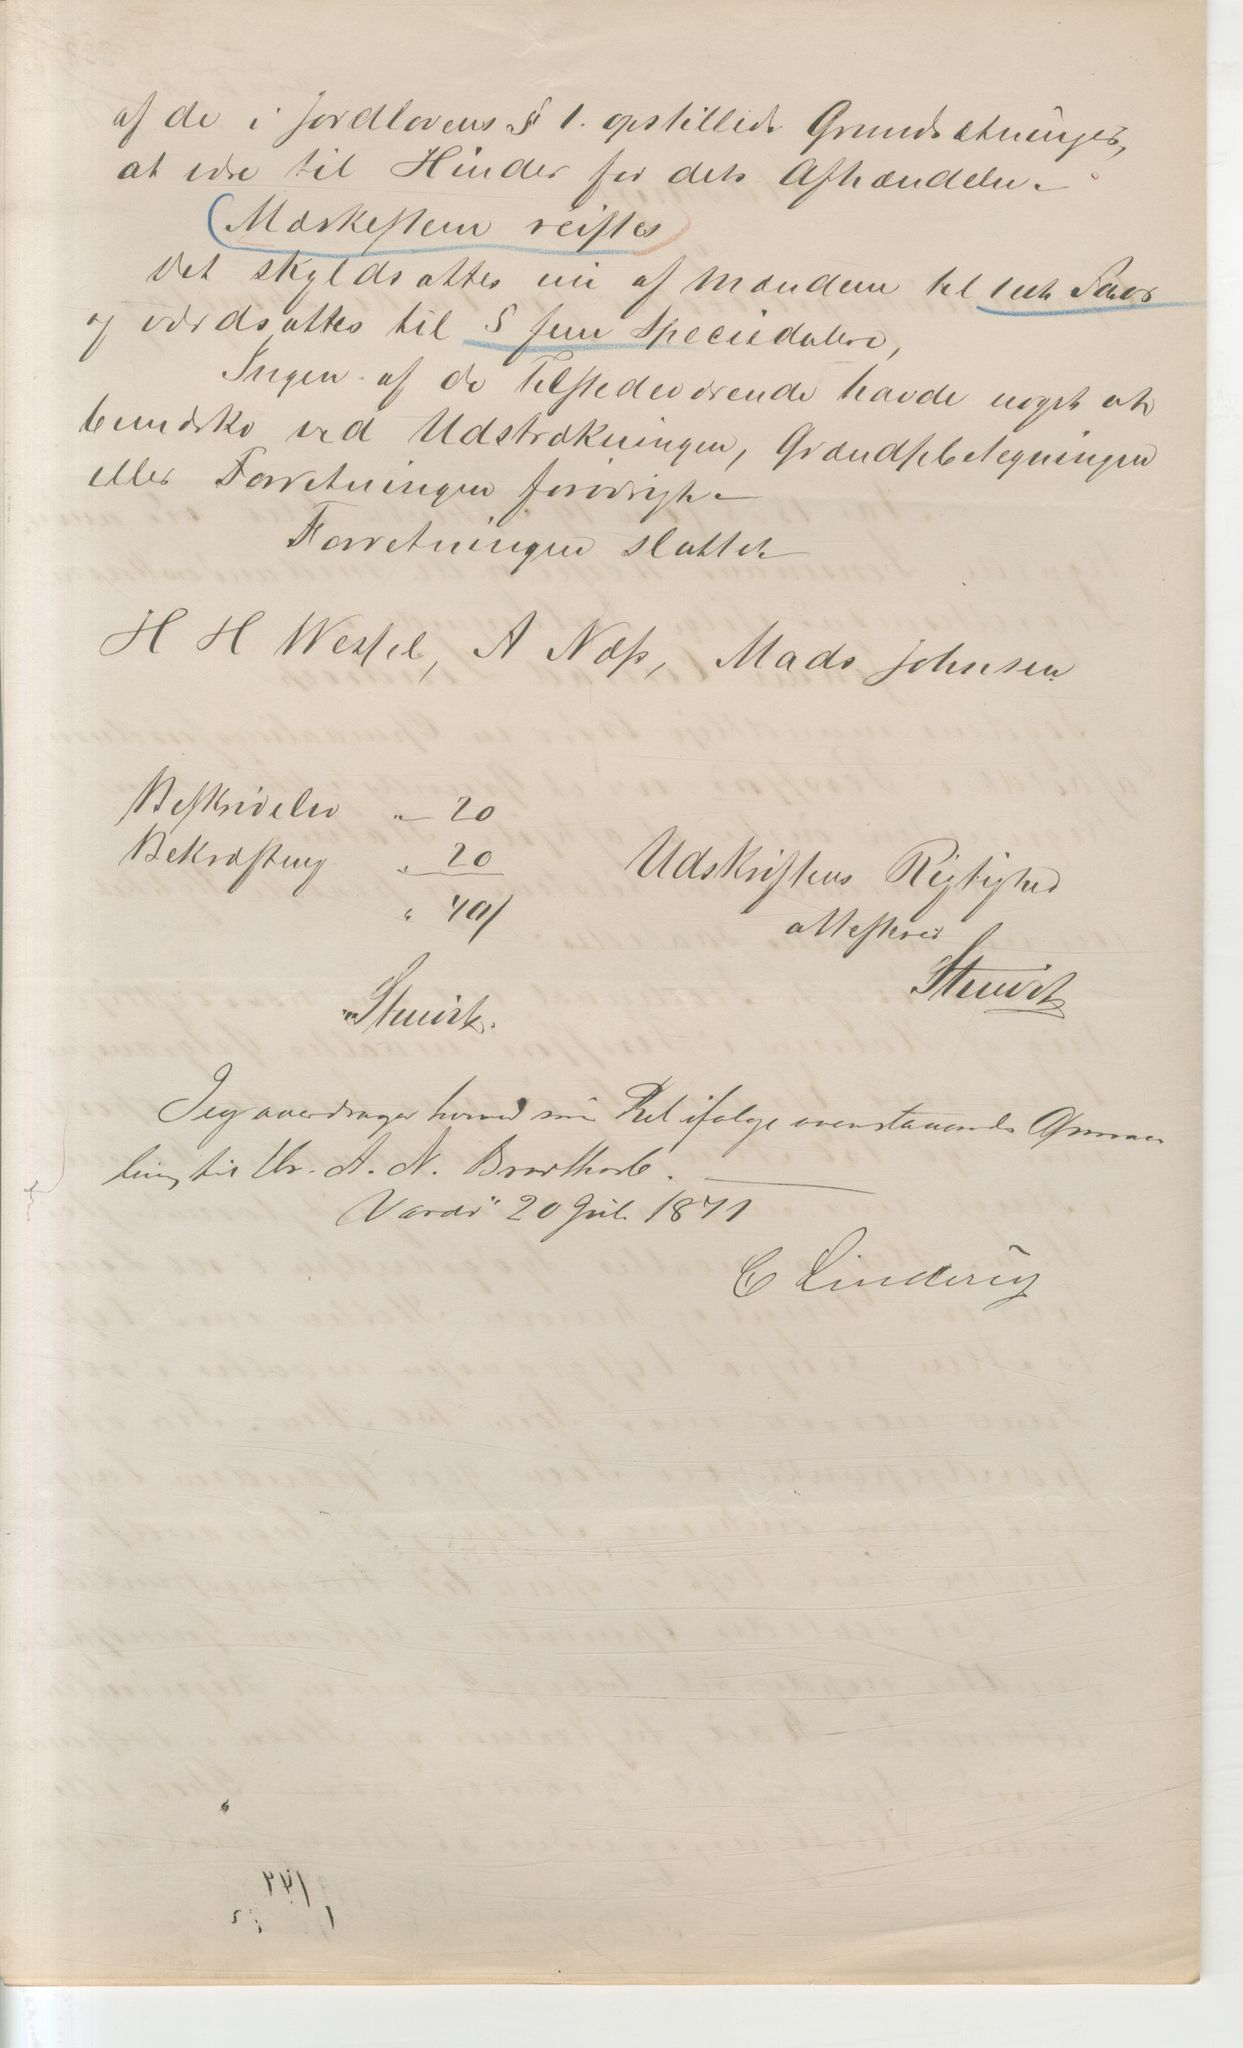 af de i Jordlovens § 1. opstillede Grundsætninger,
at være til Hinder for dets Afhændelse.
Mærkesteen reistes
Det skyldsattes nu af Mændene til 1 eet
og værdsattes til 5 fem Speciedalere,
Ingen af de Tilstedeværende havde noget at
bemærke ved Udstrækningen, Grændsebetegningen
eller Forretningen forøvrigt.
Forretningen sluttet
H H Wessel, A Næss, Mads Johnsen
Beskrivelse " 20
Bekræftelse " 20
" 40
Udskriftens Rigtighed
attesterer
Jeg overdrager herved min Ret ifølge ovenstaaende Opmaa
ling til Hr. A. N. Brodtkorb.
Vardø 20 Juli 1871
C Lindvig